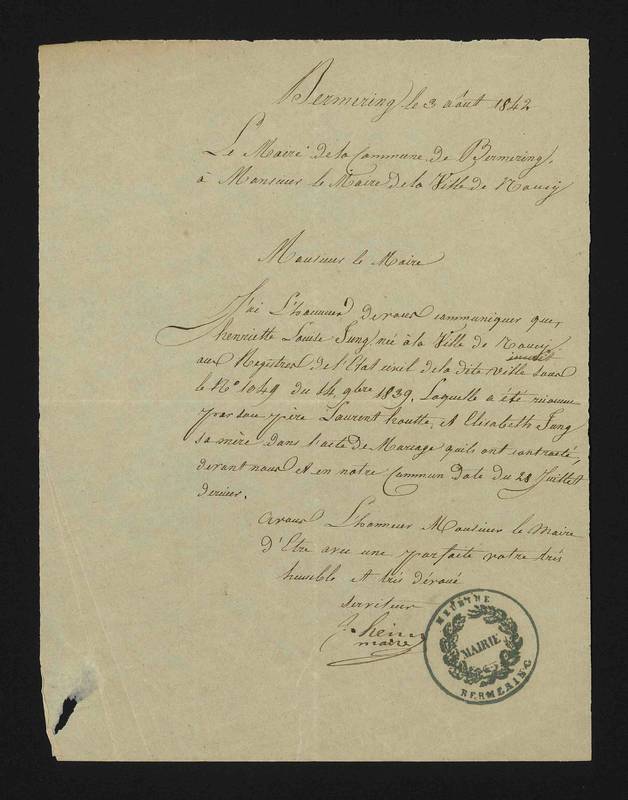 Bermering le 3 août 1842
Le Maire de la Commune de Bermering,
à Monsieur le Maire de la Ville de Nancy
Monsieur le Maire
J'ai L'honneur de vous communiquer que,
henriette Jung né à la Ville de Nancy
inscrit
aux Registres de l'Etat civil de la dite ville sous
le N° 1049 du 14 9bre 1839. Laquelle a été reconnue
par son père Laurent houtte, et Elisabeth Jung
sa mère dans l'acte de Mariage qu'ils ont contracté,
devant nous et en notre Commun Date du 28 Juillet
dernier.
avons L'honneur Monsieur le Maire
d'Etre avec une parfaite votre très
humble et très dévoué
serviteur
maire
MEURTHE
MAIRIE
BERMERING